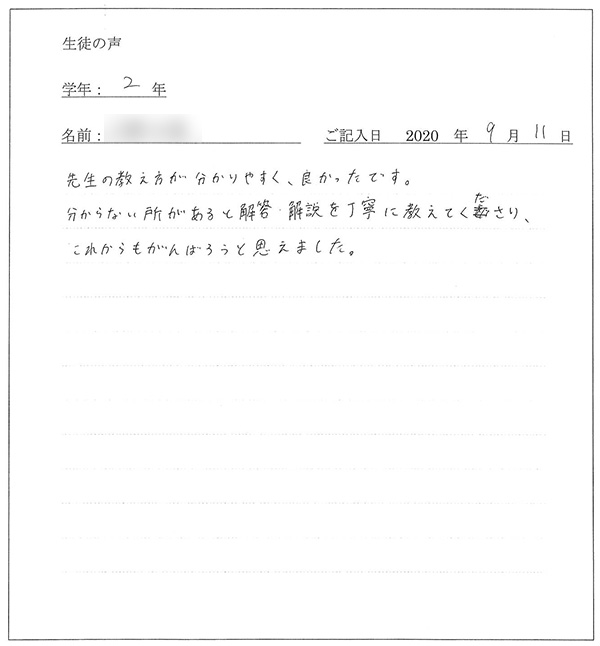 生徒の声
学年： 2 年
名前：
ご記入日 2020 年 9 月 11 日
先生の教え方が分かりやすく、良かったです。
分からない所があると解答・解説を丁寧に教えてくださり、
これからもがんばろうと思えました。